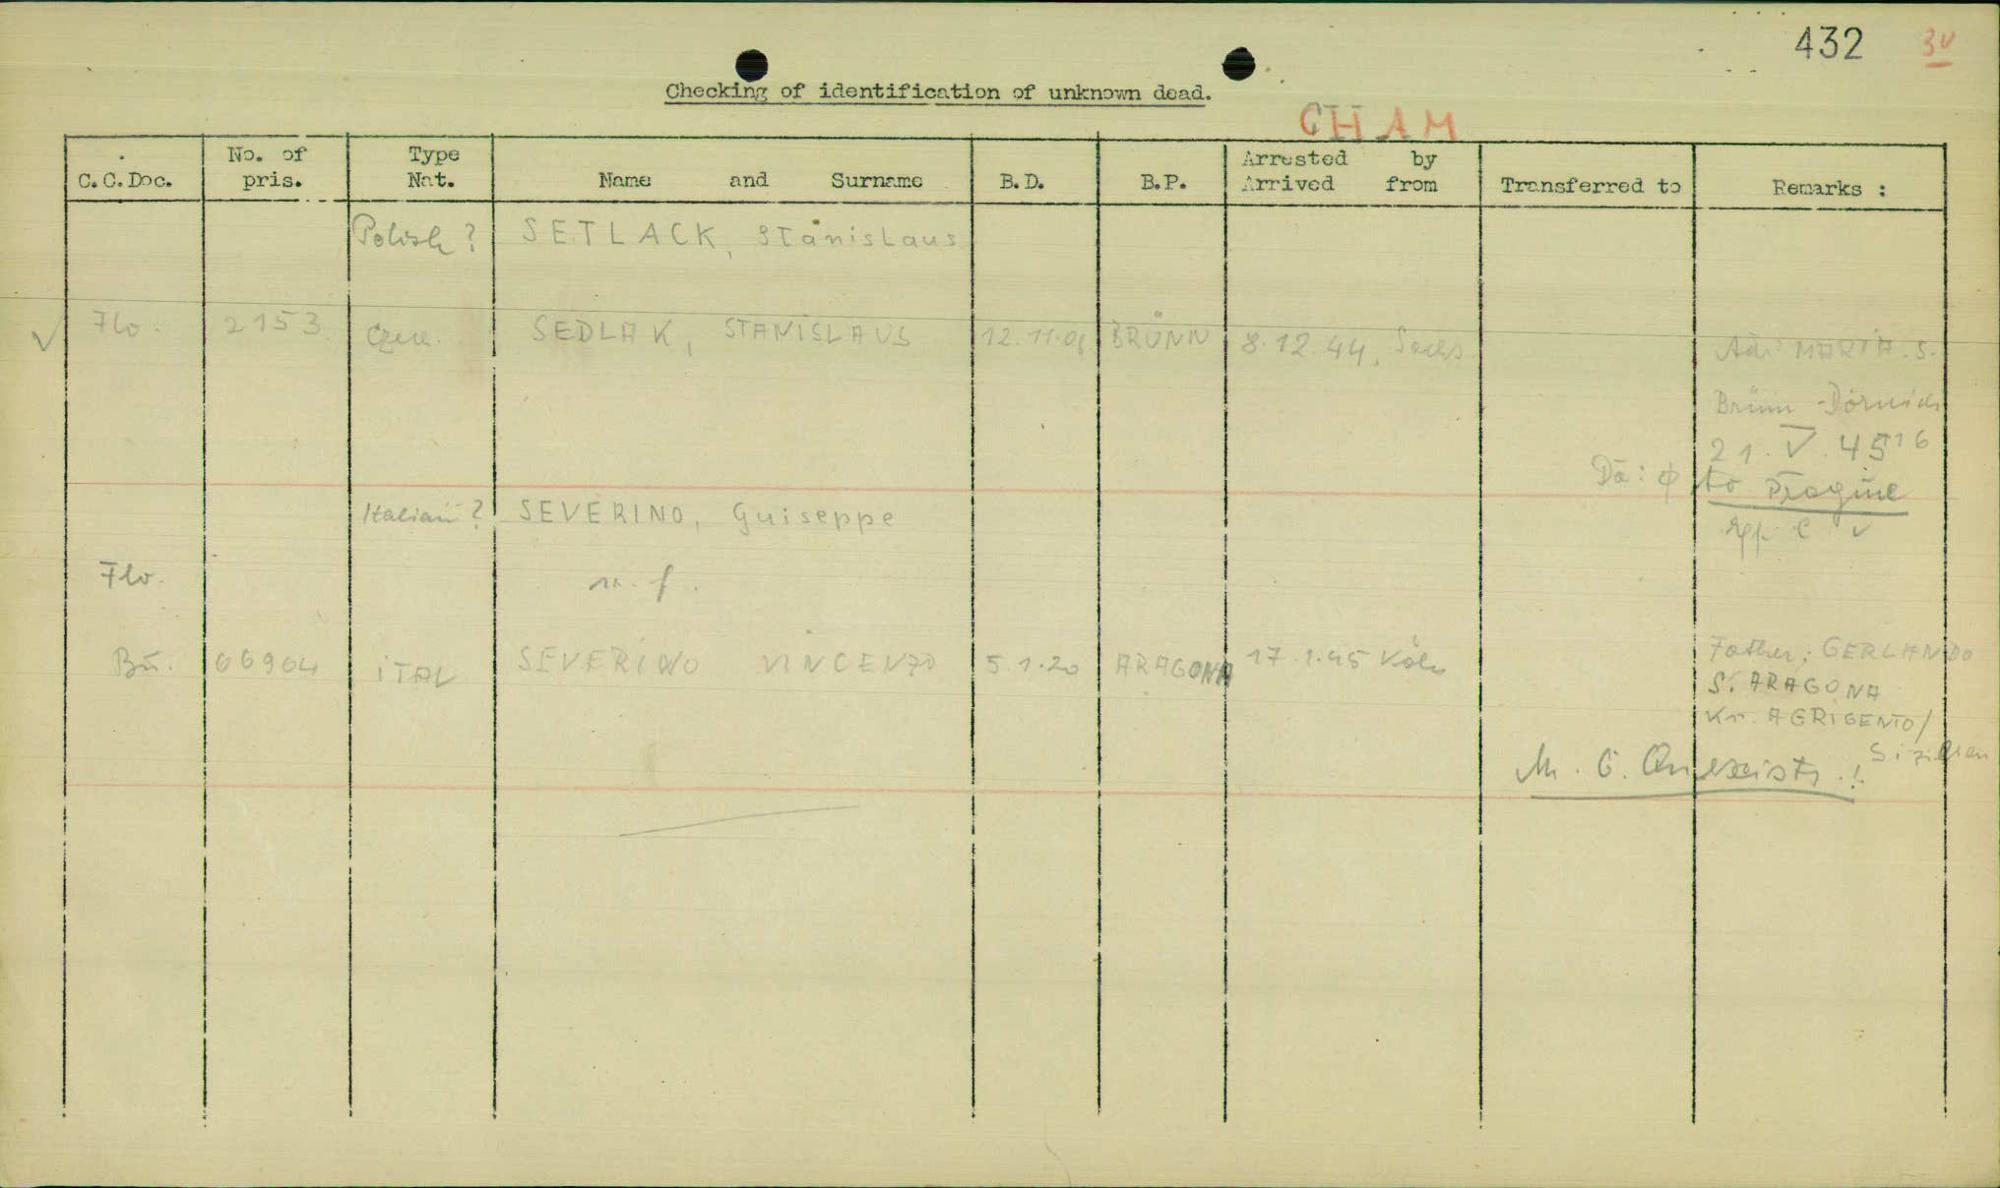 432
Checking of identification of unknown dead.
CHAM
C.C.Doc. No. of pris. Type Nat. Name and Surname B.D. B.P. Arrested by Arrived from Transferred to Remarks :
Polish ? SETLACK, Stanislaus
Flo. 2153 SEDLAK, STANISLAUS 12.11.06 BRÜNN 8.12.44, Sachs Adr: MARIA. S.
Brünn
21. V. 45
Da: to Prague
Italian ? SEVERINO, Guiseppe
Flo. n. f.
Bu. 06904 ITAL SEVERINO VINCENZO 5.1.20 ARAGONA 17.1.45 Köln Father: GERLANDO
S. ARAGONA
Kr. AGRIGENTO/
Sizilien
exists !